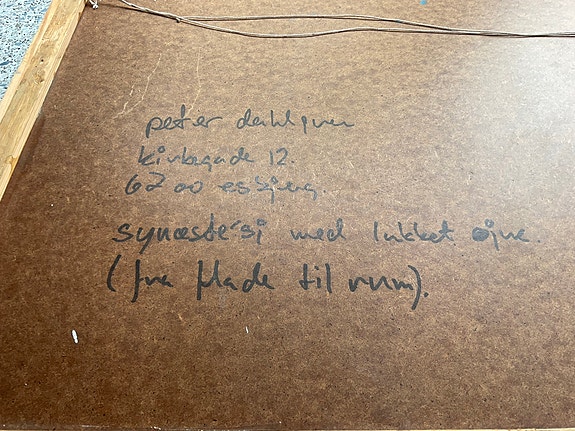 peter dahlgren
kirkegade 12.
6700 esbjerg.
synæste'si med lukket øjne.
(fra flade til rum).